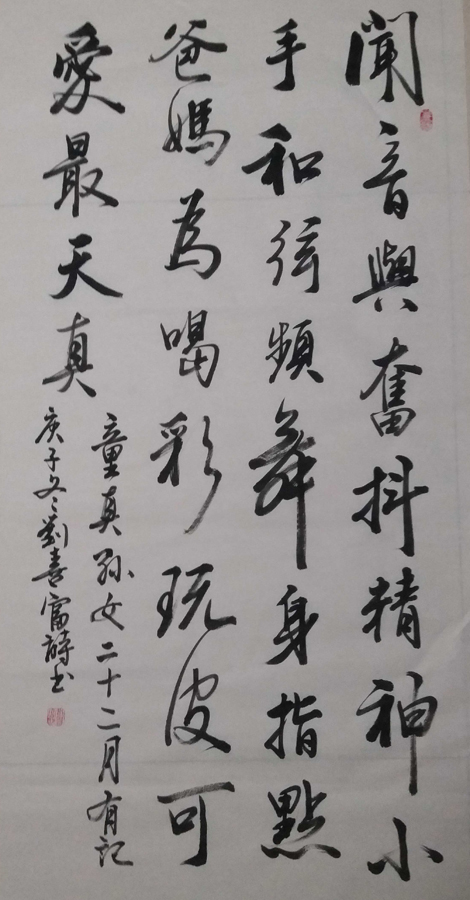 聞音興奮抖精神小
手和弦頻舞身指點
爸媽為喝彩玩皮可
愛最天真
童真孫女二十二月有記
庚子冬劉喜富詩书